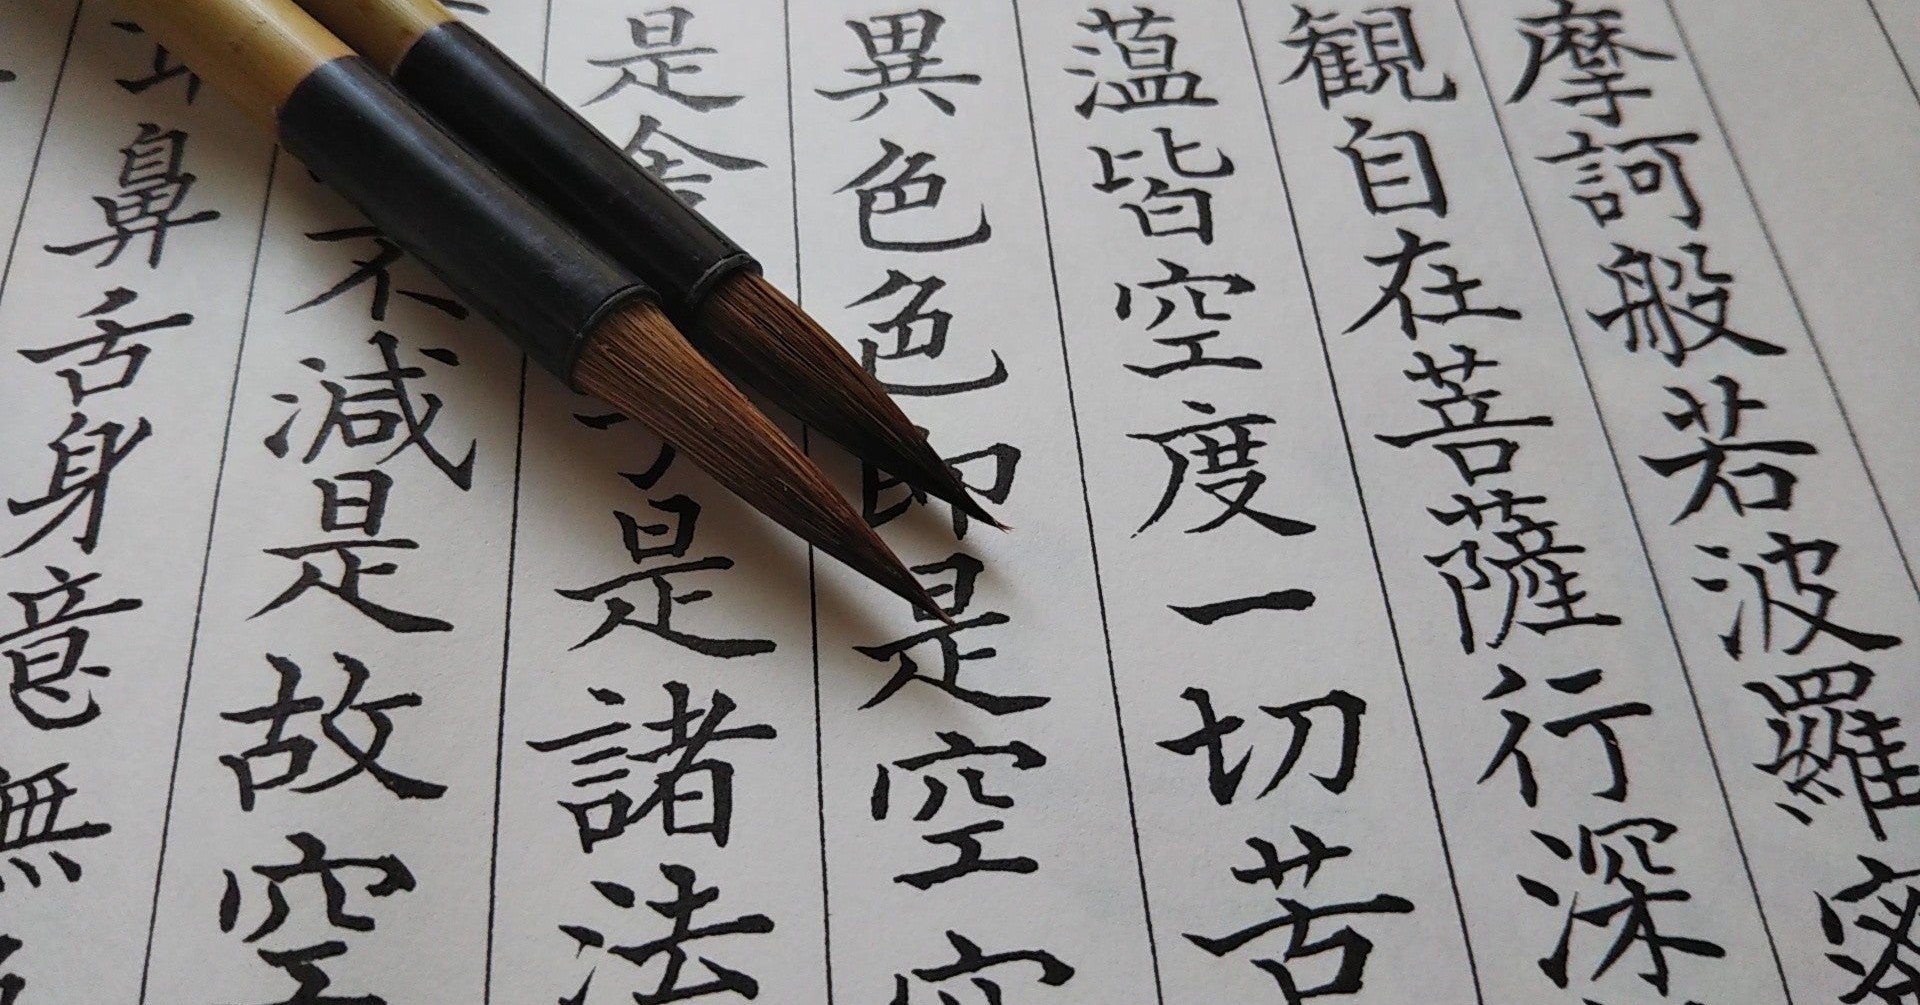 摩訶般若波羅蜜
観自在菩薩行深
蕰皆空度一切苦
異色色即是空空
是舎子是諸法
不減是故空
鼻舌身意無